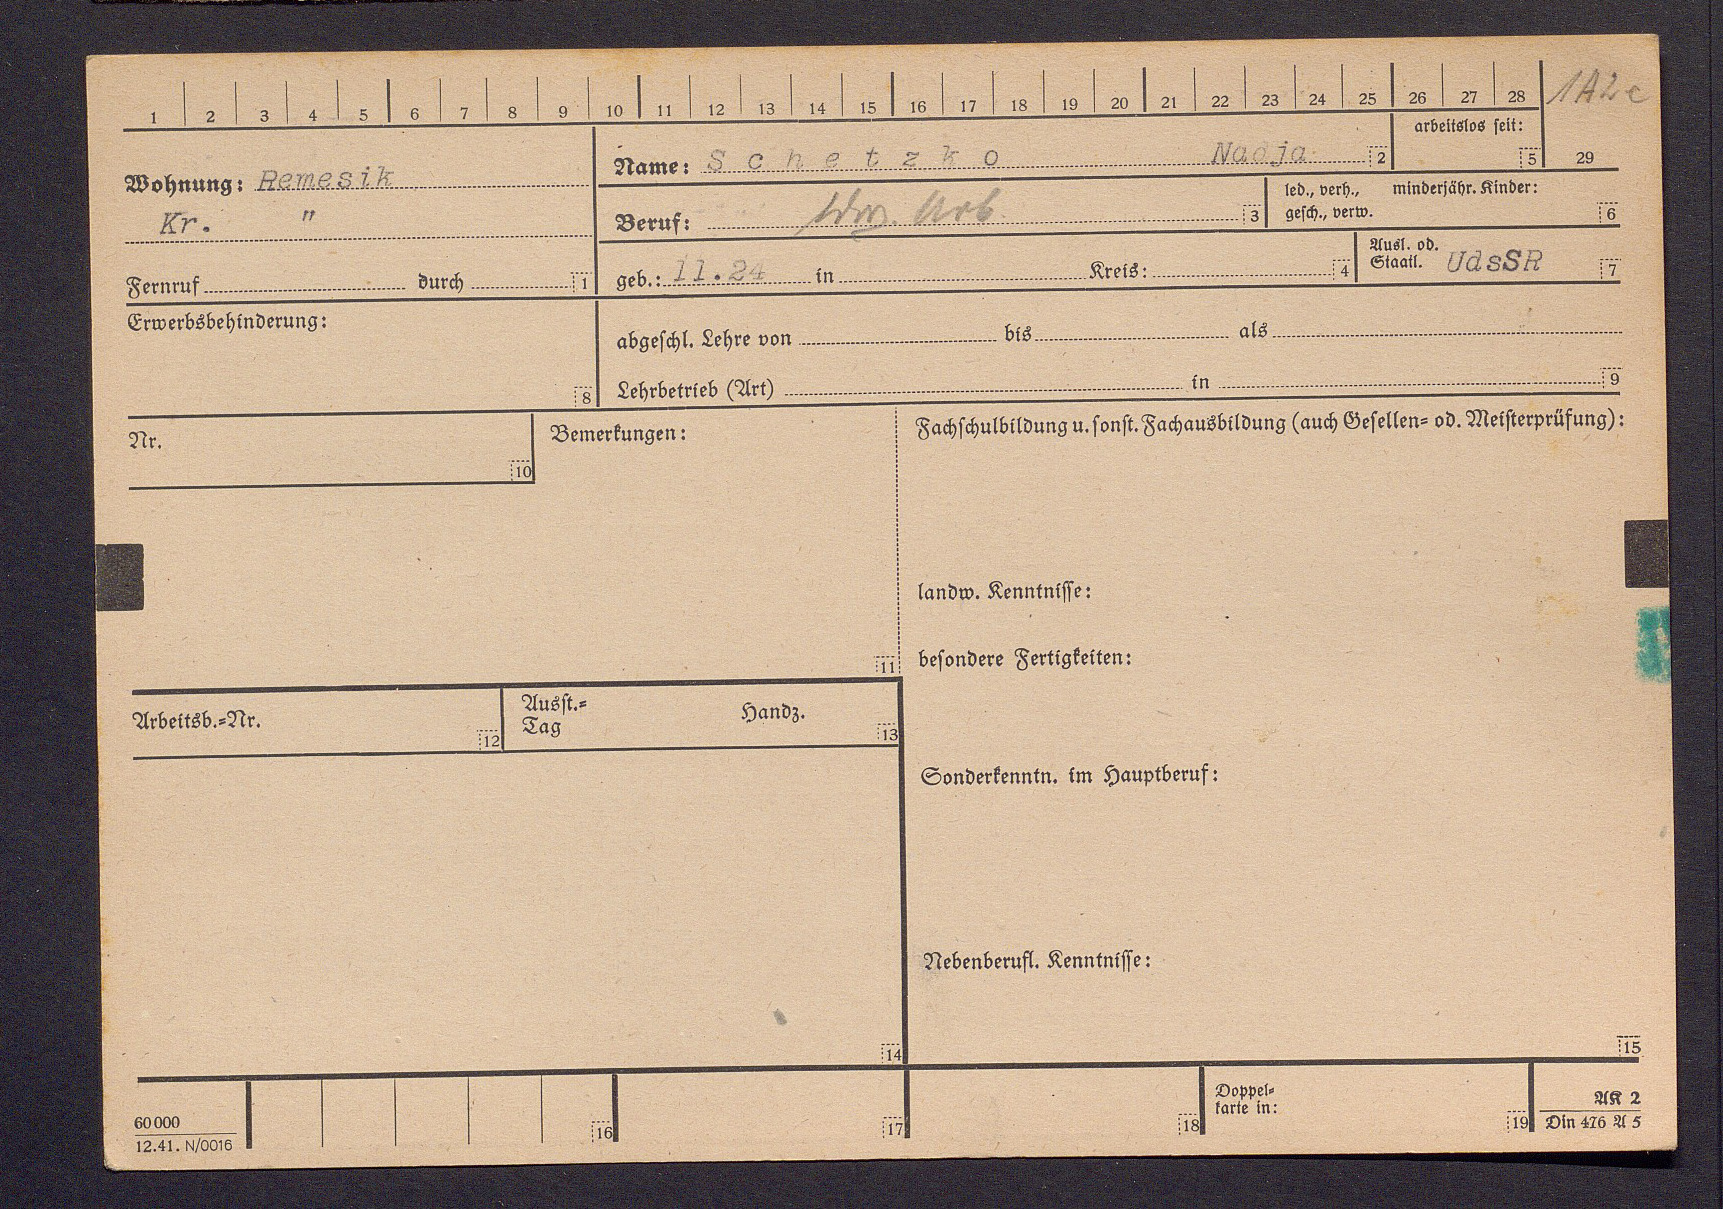 1 2 3 4 5 6 7 8 9 10 11 12 13 14 15 16 17 18 19 20 21 22 23 24 25 26 27 28 1A2c
arbeitslos seit:
5 29
Wohnung: Remesik
Kr. "
Name: Schetzko Nadja 2
Beruf: ldw. Arb 3
led., verh., gesch., verw.
minderjähr. Kinder:
6
Fernruf durch 1
geb.: 11.24 in Kreis: 4
Ausl. od.
Staatl. UdsSR 7
Erwerbsbehinderung:
8
abgeschl. Lehre von bis als
Lehrbetrieb (Art) in 9
Nr.
10
Bemerkungen:
11
Fachschulbildung u. sonst. Fachausbildung (auch Gesellen= od. Meisterprüfung):
landw. Kenntnisse:
besondere Fertigkeiten:
Arbeitsb.=Nr.
12
Ausst.=
Tag
Handz.
13
Sonderkenntn. im Hauptberuf:
Nebenberufl. Kenntnisse:
14
15
60 000
12.41. N/0016
16
17
18
Doppel=
karte in:
19
AK 2
Din 476 A 5